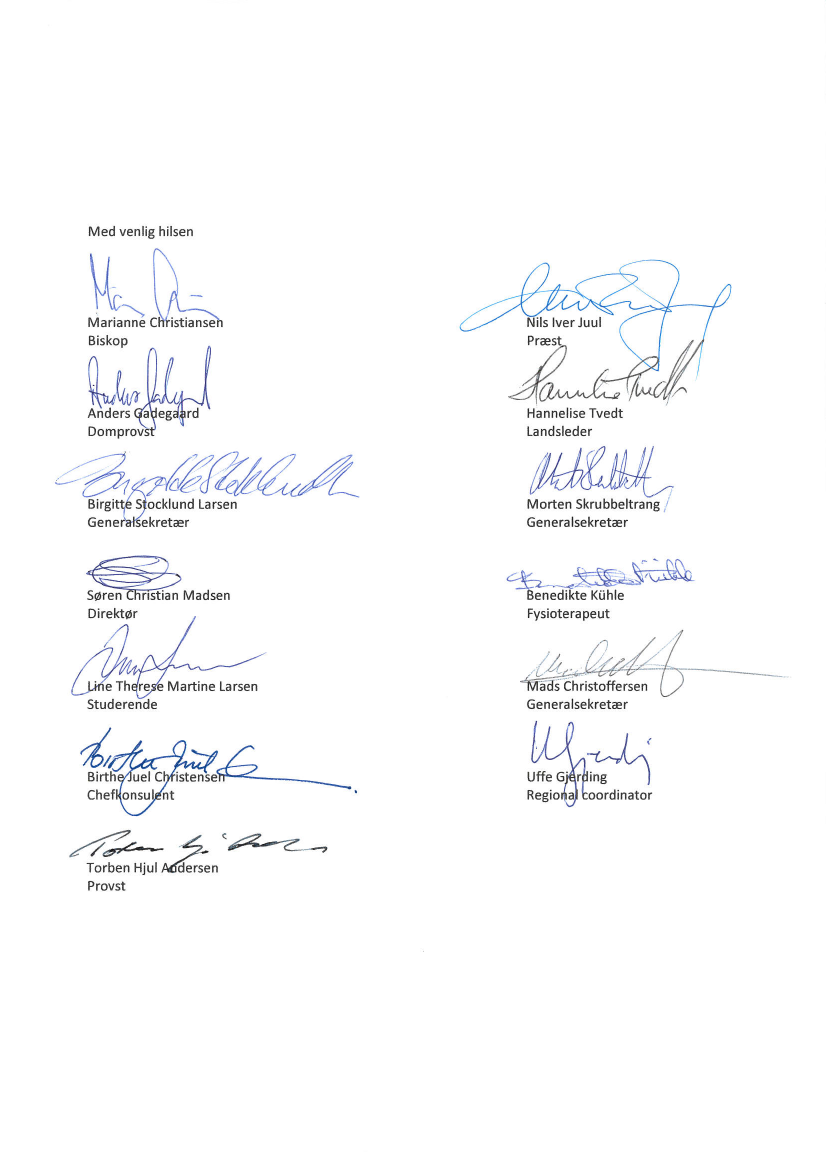 Med venlig hilsen
Marianne Christiansen
Biskop
Anders Gadegaard
Domprovst
Birgitte Stocklund Larsen
Generalsekretær
Søren Christian Madsen
Direktør
Line Therese Martine Larsen
Studerende
Birthe Juel Christensen
Chefkonsulent
Torben Hjul Andersen
Provst
Nils Iver Juul
Præst
Hannelise Tvedt
Hannelise Tvedt
Landsleder
Morten Skrubbeltrang
Generalsekretær
Benedikte Kühle
Fysioterapeut
Mads Christoffersen
Generalsekretær
Uffe Gjerding
Regional coordinator